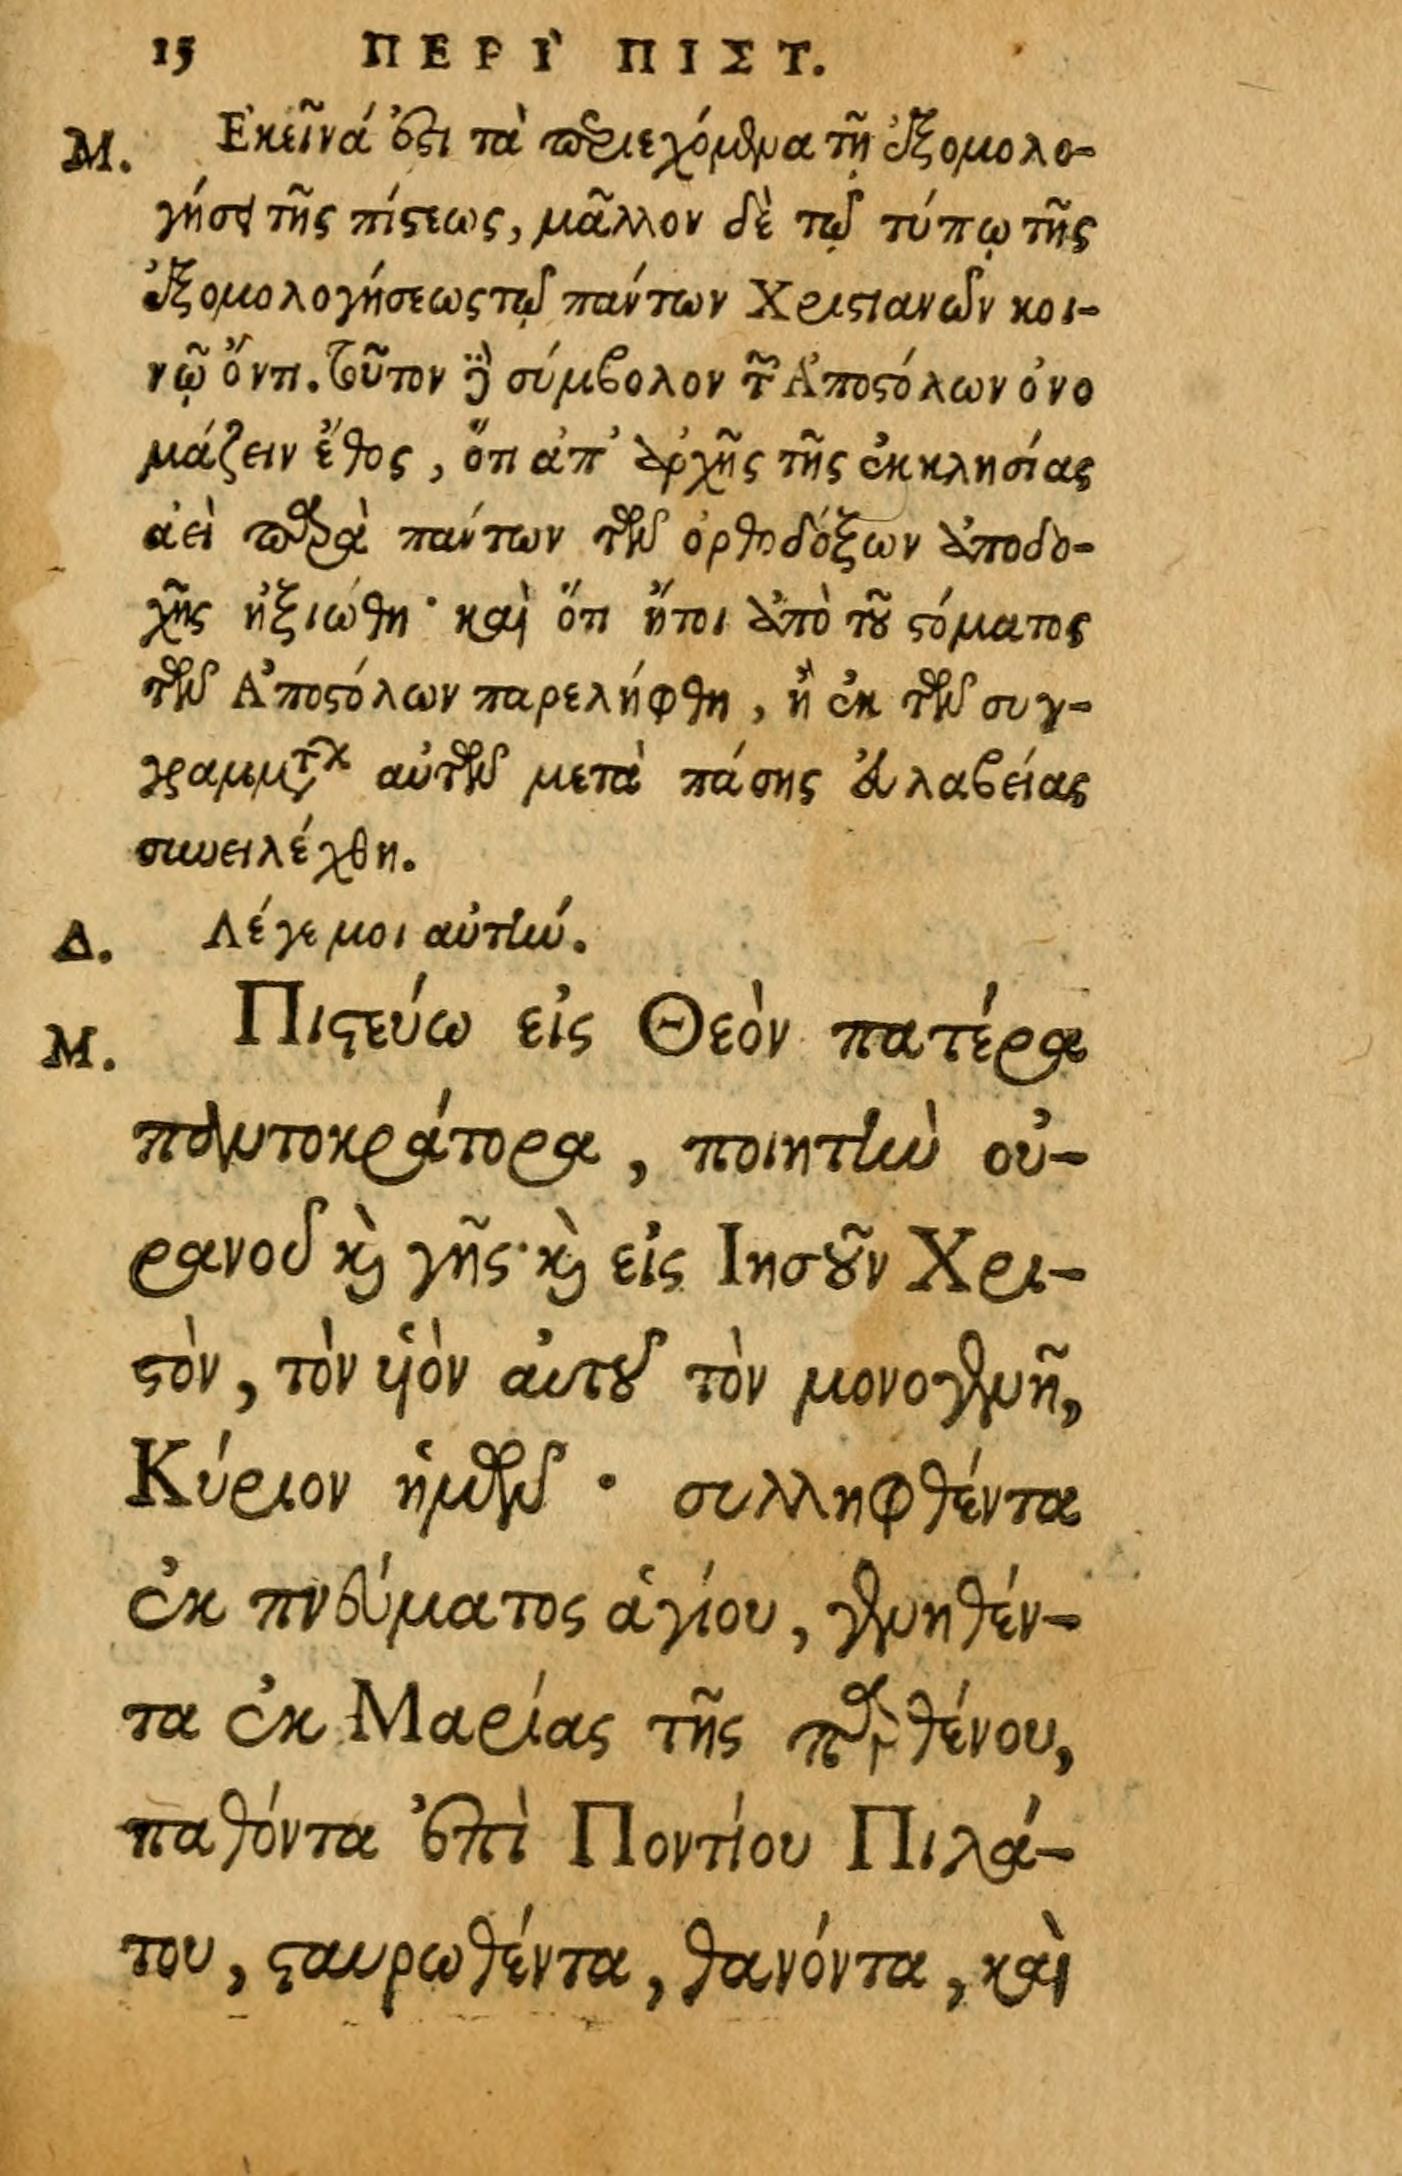 15 ΠΕΡΙ` ΠΙΣΤ.
Μ. Ἐκεῖνά ἐστι τὰ περιεχόμενα τῇ ἐξομολο-
γήσει τῆς πίστεως, μᾶλλον δὲ τῷ τύπῳ τῆς
ἐξομολογήσεως τῷ πάντων Χριστιανῶν κοι-
νῷ ὄντι. τοῦτον ἢ σύμβολον τῶν Ἀποστόλων ὀνο
μάζειν ἔθος, ὅτι ἀπ' ἀρχῆς τῆς ἐκκλησίας
ἀεὶ παρὰ πάντων τῶν ὀρθοδόξων ἀποδο-
χῆς ἠξιώθη· καὶ ὅτι ἤτοι ἀπὸ τοῦ στόματος
τῶν Ἀποστόλων παρελήφθη, ἢ ἐκ τῶν συγ-
γραμμάτων αὐτῶν μετὰ πάσης εὐλαβείας
συνειλέχθη.
Δ. Λέγε μοι αὐτήν.
Μ. Πιστεύω εἰς Θεὸν πατέρα
παντοκράτορα, ποιητὴν οὐ-
ρανοῦ καὶ γῆς· καὶ εἰς Ἰησοῦν Χρι-
στὸν, τὸν υἱὸν αὐτοῦ τὸν μονογενῆ,
Κύριον ἡμῶν · συλληφθέντα
ἐκ πνεύματος ἁγίου, γεννηθέν-
τα ἐκ Μαρίας τῆς παρθένου,
παθόντα ἐπὶ Ποντίου Πιλά-
του, σταυρωθέντα, θανόντα, καὶ